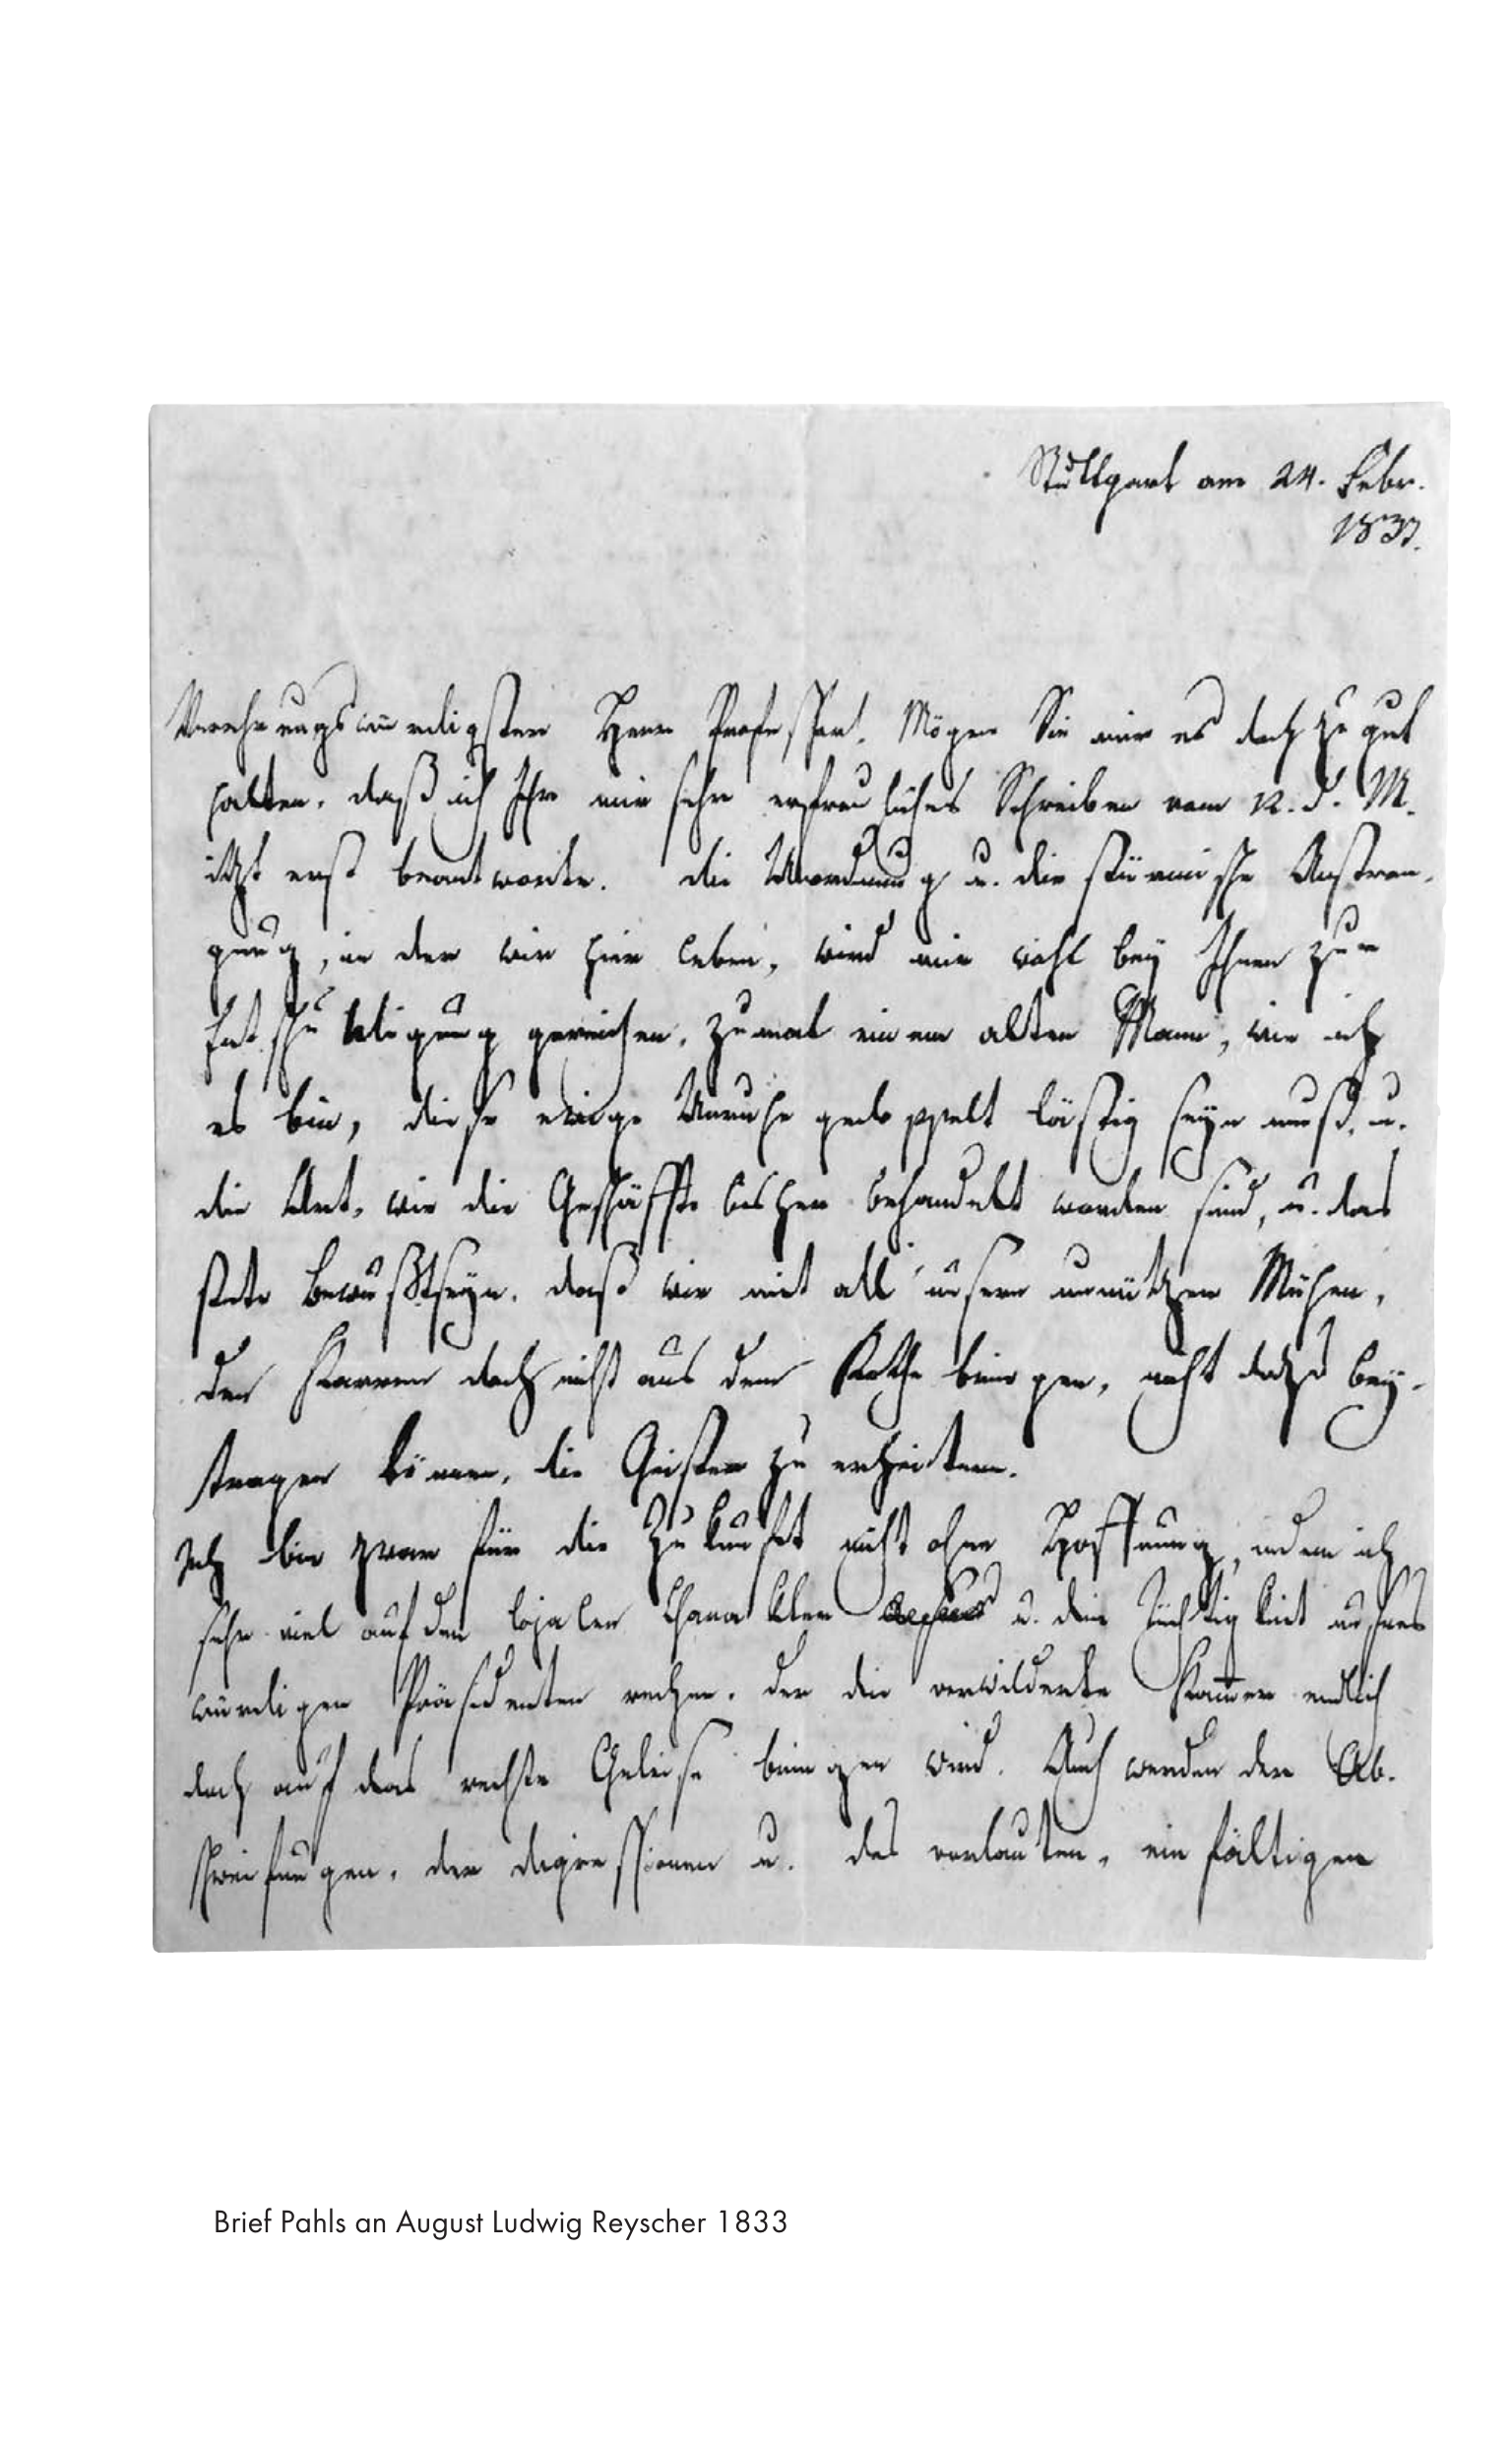 Stuttgart am 24. Febr.
1833.
Verehrungswürdigster Herr Professor. Mögen Sie mir es doch zu gut
halten, daß ich Ihr mir sehr erfreuliches Schreiben vom 12. d. M.
itzt erst beantworte. Die Unordnung u. die stürmische Anstren-
gung, in der wir hier leben, wird mir wohl bey Ihnen zur
Entschuldigung gereichen, zumal einem alten Mann, wie ich
es bin, diese ewige Unruhe gedoppelt lästig seyn muß, u.
die Art, wie die Geschäffte bisher behandelt worden sind, u. das
stete Bewußtseyn, daß wir mit all unsern unnützen Mühen,
den Karren doch nicht aus dem Kothe bringen, nicht dazu bey-
tragen können, die Geister zu erheitern.
Ich bin zwar für die Zukunft nicht ohne Hoffnung, indem ich
sehr viel auf den lojalen Charakter u. die Tüchtigkeit unseres
würdigen Präsidenten rechne, der die verwilderte Kammer endlich
doch auf das rechte Geleise bringen wird. Auch werden der Ab-
schweifungen, der Digressionen u. des vorlauten, einfältigen
Brief Pahls an August Ludwig Reyscher 1833